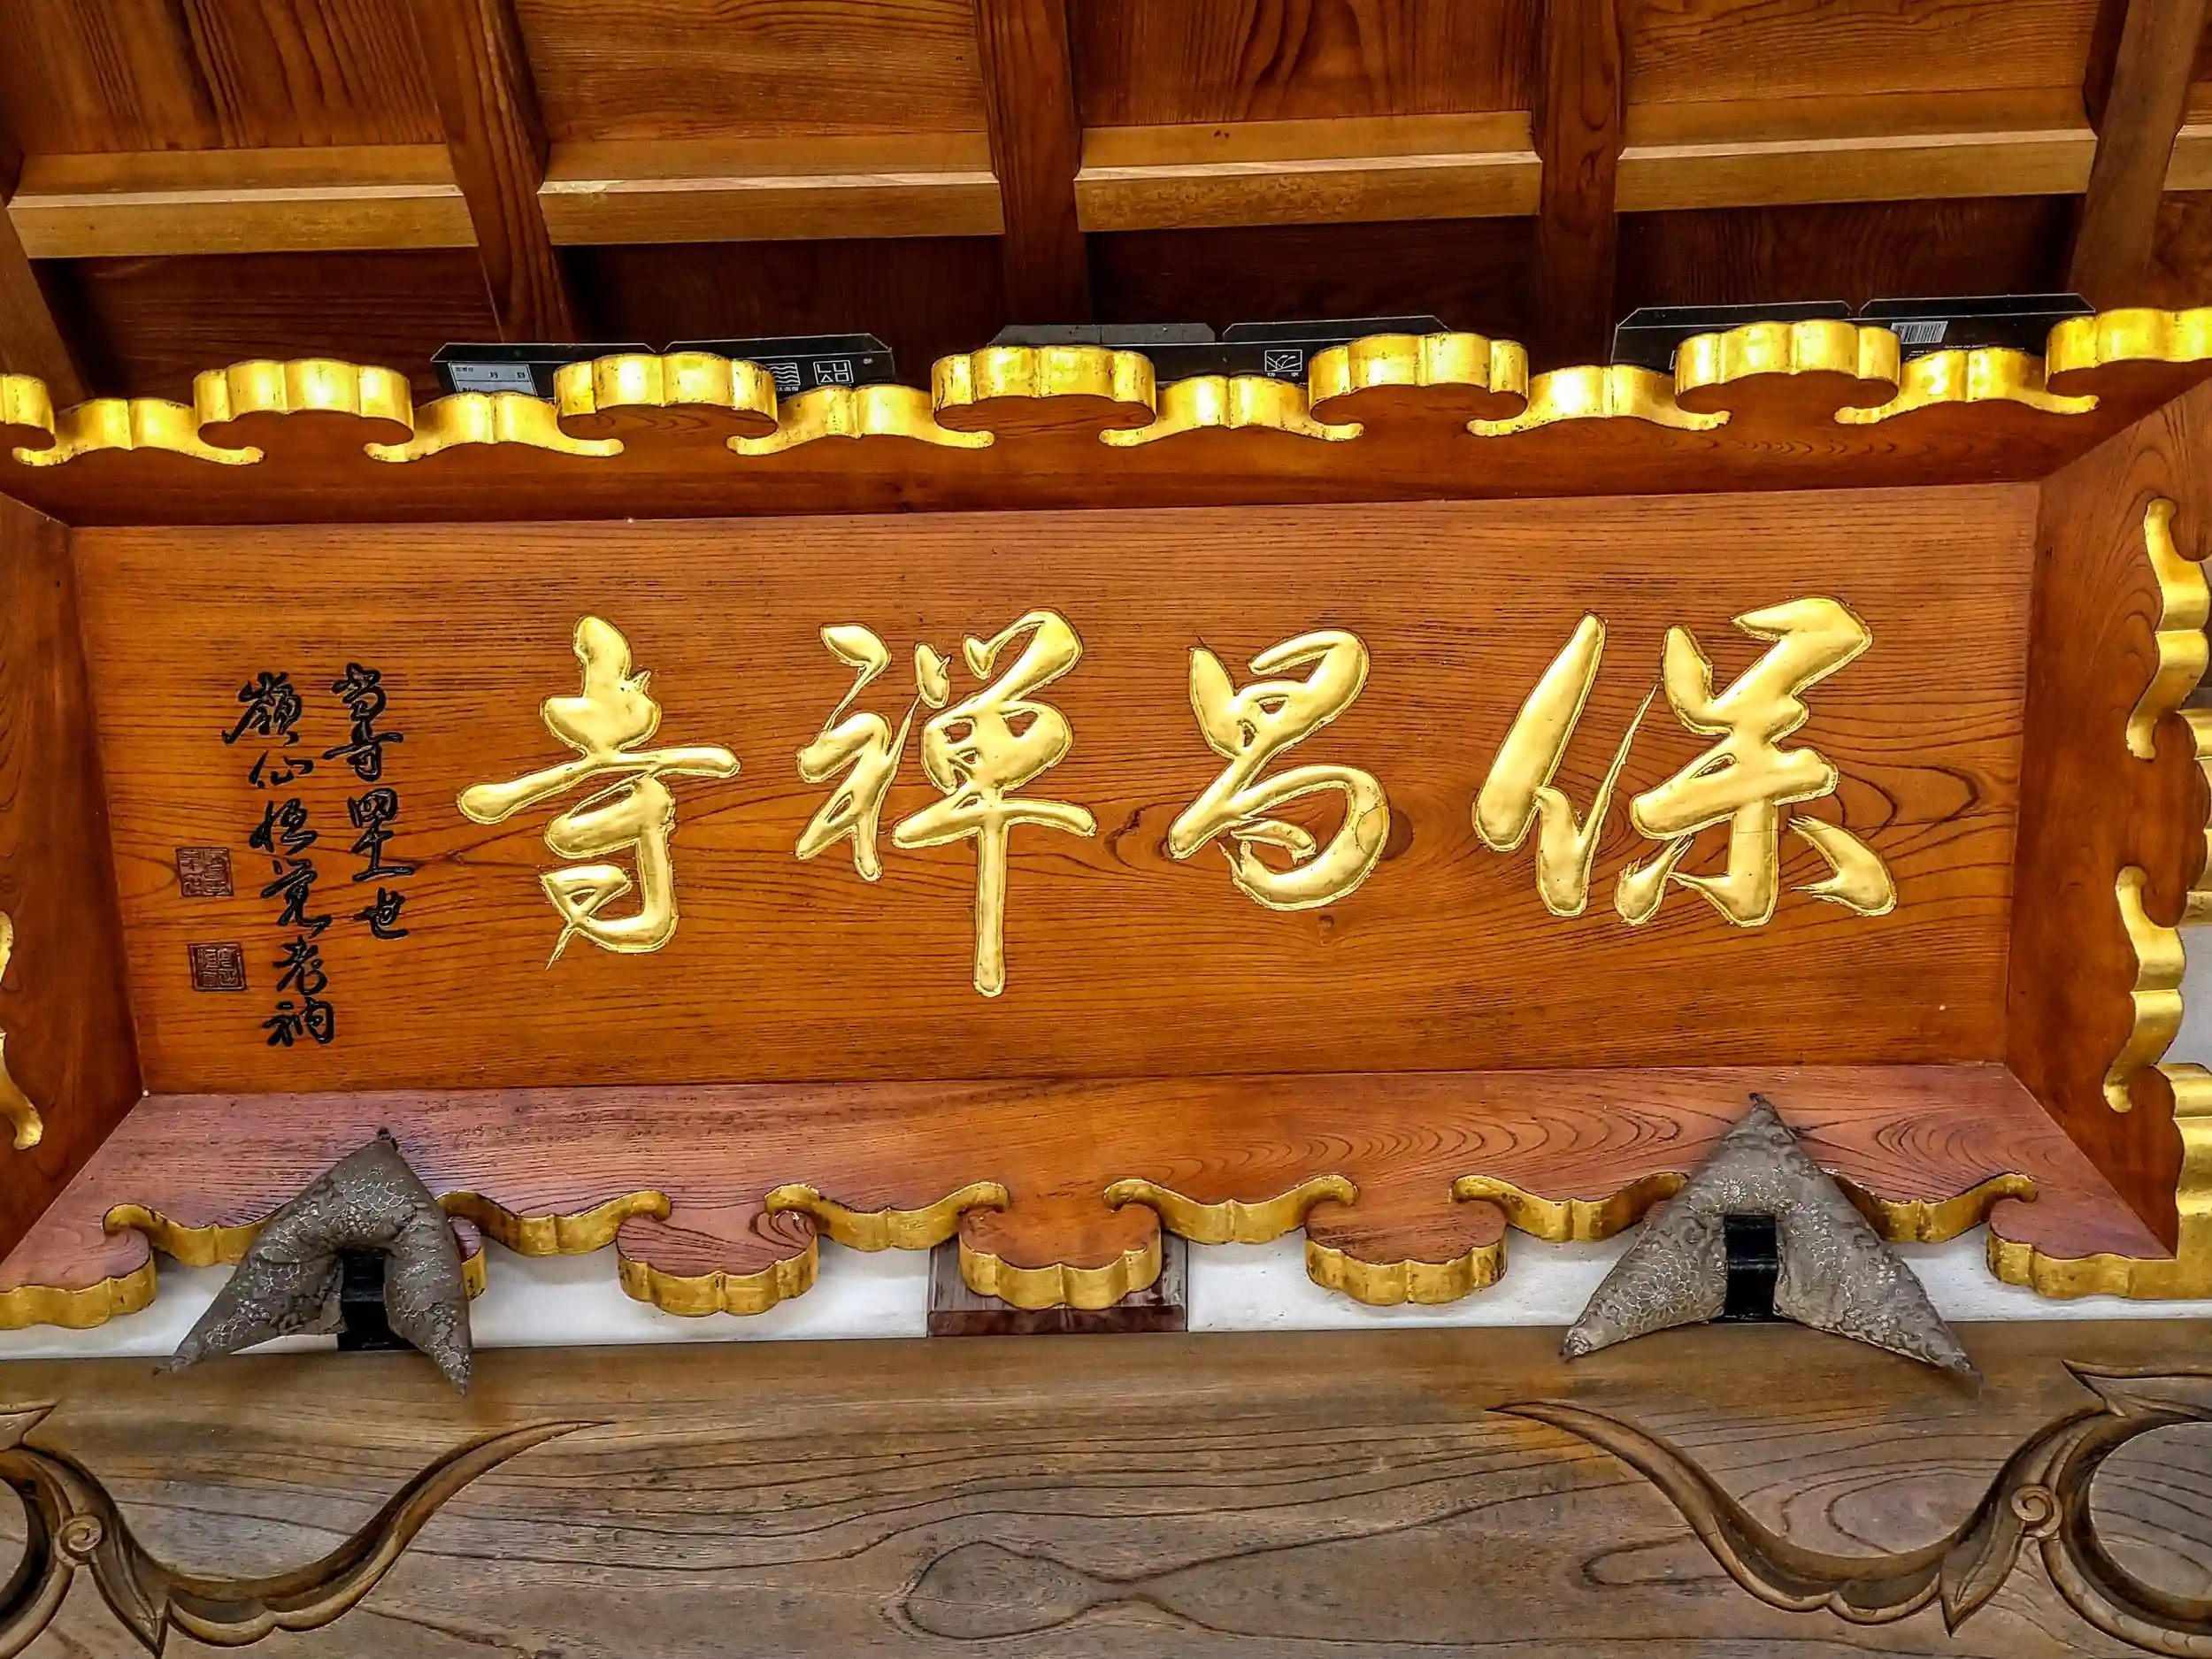 保昌禅寺
当寺四十一世
嶺仙悟覚老衲
LUAO